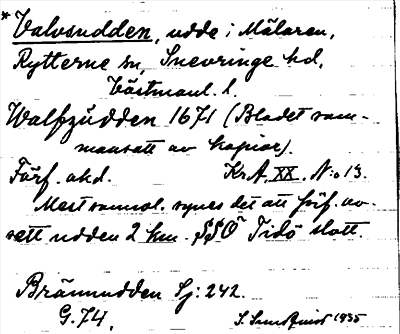 *Valvsudden, udde i Mälaren,
Rytterne sn, Snevringe hd,
Västmanl. l.
Walfzudden 1671 (Bladet sam-
mansatt av kopior).
Förf. okd. KrA. XX. N:o 13.
Mest sannol. synes det att förf. av-
sett udden 2 km. SSÖ Tidö slott.
Brännudden Sj: 242.
G. 74. 1935